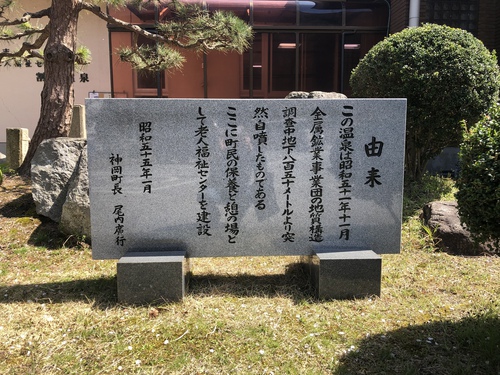 由来
この温泉は昭和五十一年十一月
金属鉱業事業団の地質構造
調査中地下八百五十メートルより突
然自噴したものである
ここに町民の保養と憩の場と
して老人福祉センターを建設
昭和五十五年十一月
神岡町長 尾内席行
泉